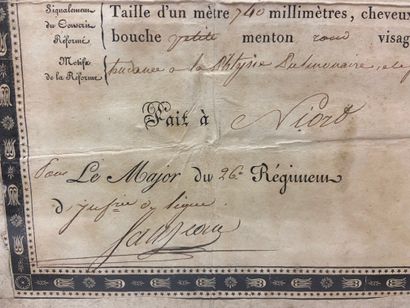 Signalement
du Conscrit
Réformé
Taille d'un mètre 740 millimètres, cheveux
bouche petite menton rond visag
Motifs
de la Réforme
tendance a la Phtysie Pulmonaire, et
Fait à Niort
Pour Le Major du 26e Régiment
d'infrie de ligne